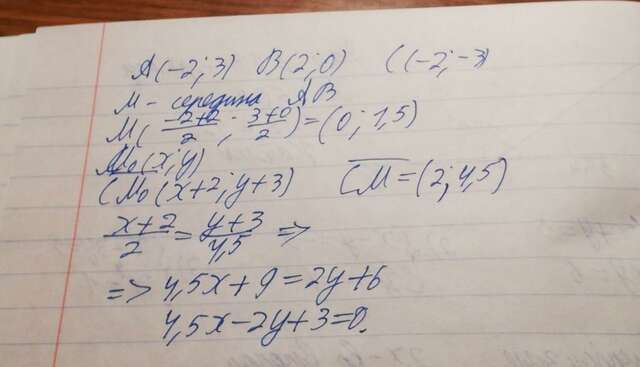 A(-2;3) B(2;0) C(-2;-3)
M - середина AB
M(\frac{-2+2}{2}; \frac{3+0}{2})=(0;1,5)
M₀(x;y)
CM₀(x+2;y+3) \overline{CM}=(2;4,5)
\frac{x+2}{2}=\frac{y+3}{4,5} =>
=> 4,5x+9=2y+6
4,5x-2y+3=0.